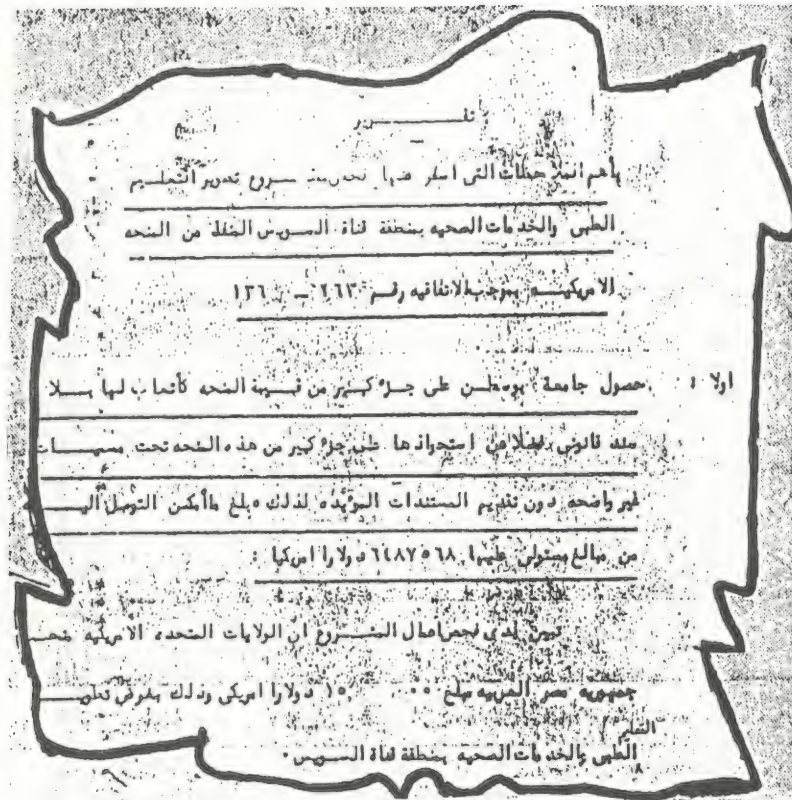 تقـــــرير
بأهم الملاحظات التى اسفر عنها فحص مشروع تطوير التعليم
الطبى والخدمات الصحيه بمنطقة قناة السويس المنفذ من المنحه
الامريكيـــه بموجب الاتفاقيه رقم ٢٦٣ –
اولا : حصول جامعة بوسطن على جزء كبير من قيمة المنحه كأتعاب لها بـــلا
سند قانونى فضلا عن استحواذها على جزء كبير من هذه المنحه تحت مسميـــات
غير واضحه دون تقديم المستندات المؤيده لذلك وبلغ ماأمكن التوصل اليـــ
من مبالغ مستولى عليها ٦٤٨٧٥٦٨ دولارا امريكيا :
تبين لدى فحص اعمال المشـــروع ان الولايات المتحده الامريكيه منحـــ
جمهوريه مصر العربيه مبلغ دولارا امريكى وذلك بغرض تطويـــ
التعليم
الطبى والخدمات الصحيه بمنطقة قناة السويس .